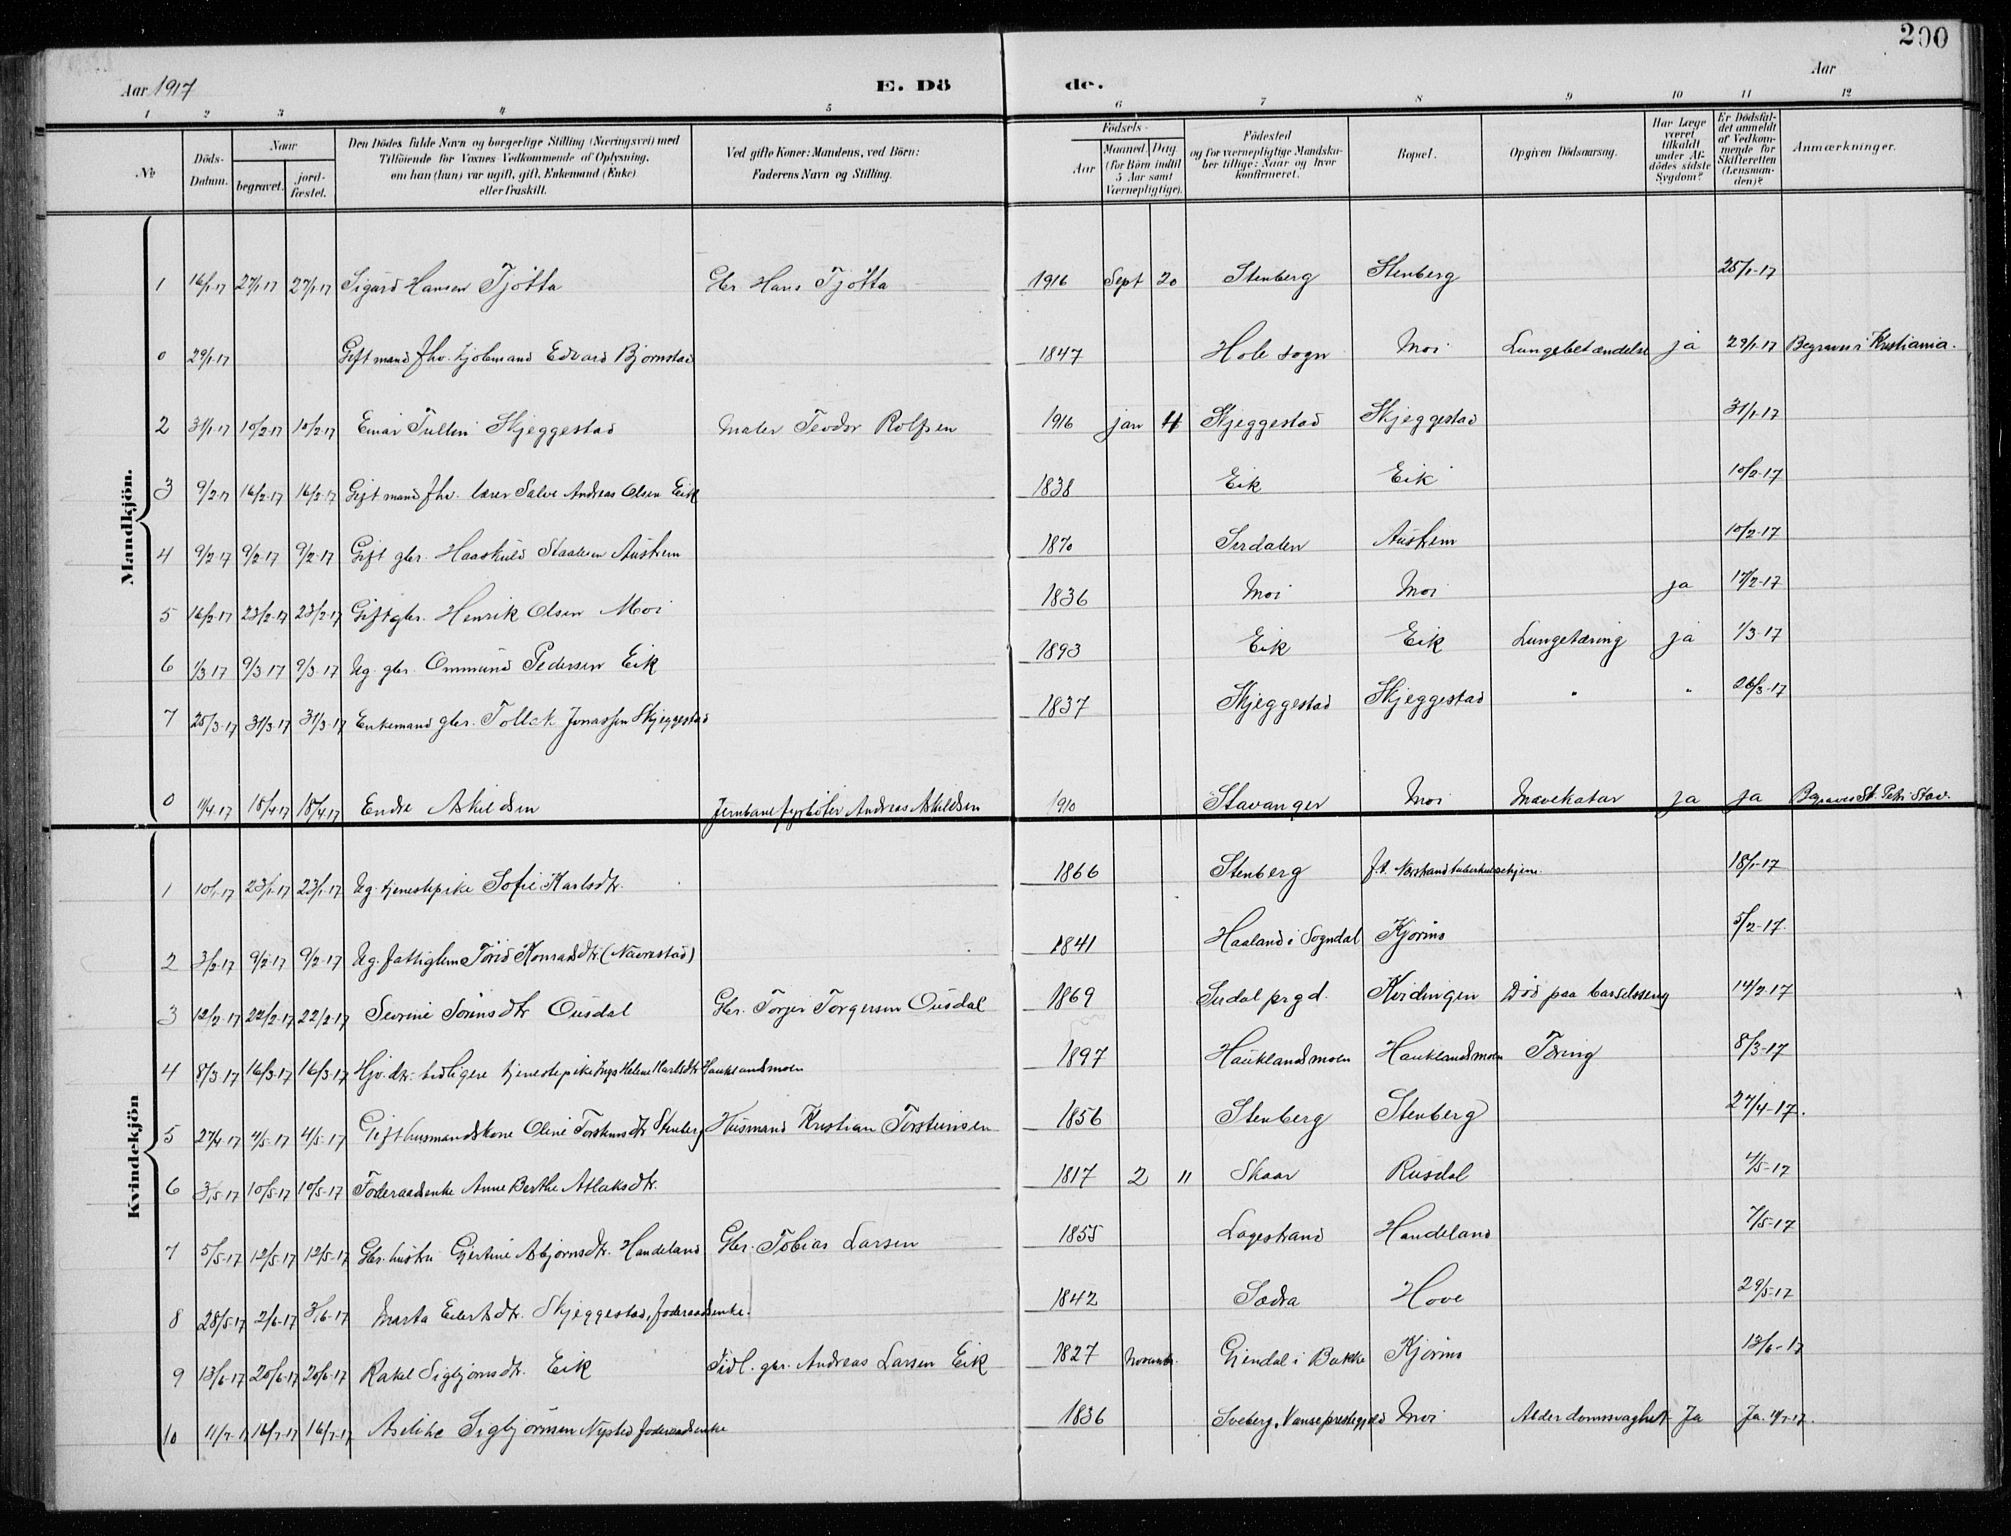 200
Aar 1917
E. Döde.
Aar
1 2 3 4 5 6 7 8 9 10 11 12
No
Döds-Datum.
Naar
begravet.
jord-fæstet.
Den Dödes fulde Navn og borgerlige Stilling (Næringsvei) med
Tilföiende for Voxnes Vedkommende af Oplysning,
om han (hun) var ugift, gift, Enkemand (Enke)
eller fraskilt.
Ved gifte Koner: Mandens, ved Börn:
Faderens Navn og Stilling.
Födsels-
Aar
Maaned. Dag.
(for Börn indtil
5 Aar samt
Værnepligtige).
Födested
og for værnepligtige Mandska-
ber tillige: Naar og hvor
konfirmeret.
Bopæl.
Opgiven Dödsaarsag.
Har Læge
været
tilkaldt
under Af-
dödes sidste
Sygdom?
Er Dödsfal-
det anmeldt
af Vedkom-
mende for
Skifteretten
(Lensman-
den)?
Anmærkninger.
Mandkjön.
1 16/1-17 27/1-17 27/1-17 Sigurd Hansen Tjötta Gbr. Hans Tjötta 1916 Sept 20 Stenberg Stenberg 25/1-17
0 29/1-17 Gift mand fhv. kjöbmand Edvard Bjornstad 1847 Hole sogn Moi Lungebetændelse ja 29/1-17 Begraves i Kristiania.
2 31/1-17 10/2-17 10/2-17 Einar Tullen Skjeggestad Maler Teodor Rolfsen 1916 jan 4 Skjeggestad Skjeggestad 31/1-17
3 9/2-17 16/2-17 16/2-17 Gift mand fhv. lærer Salve Andreas Olsen Eik 1838 Eik Eik 10/2-17
4 9/2-17 9/2-17 9/2-17 Gift gbr. Haaskuld Staalesen Austrem 1870 Sirdalen Austrem 10/2-17
5 16/2-17 23/2-17 23/2-17 Gift gbr. Henrik Olsen Moi 1836 Moi Moi ja 17/2-17
6 1/3-17 9/3-17 9/3-17 Ug. gbr. Ommund Pedersen Eik 1893 Eik Eik Lungetæring ja 1/3-17
7 25/3-17 31/3-17 31/3-17 Enkemand gbr. Tollek Jonassen Skjeggestad 1837 Skjeggestad Skjeggestad " " 26/3-17
0 11/4-17 18/4-17 18/4-17 Endre Askildsen Jernbanefyrböter Andreas Askildsen 1910 Stavanger Moi Mavekatar ja ja Begraves St. Petri Stav.
Kvindekjön
1 10/1-17 23/1-17 23/1-17 Ug. tjenestepike Sofie Karlsdtr. 1866 Stenberg f.t. Nærstrand tuberkulosehjem. 18/1-17
2 3/2-17 9/2-17 9/2-17 Ug. fattiglem Torid Konradsdtr. (Nævrestad) 1841 Haaland i Sogndal Kjorms 5/2-17.
3 12/2-17 22/2-17 22/2-17 Sevrine Sörensdtr Ousdal Gbr. Torger Torgersen Ousdal 1869 Sirdal prgd. Kvidingen Död paa barselseng 14/2-17
4 8/3-17 16/3-17 16/3-17 Hjv. dtr. tidligere tjenestepike Inga Helene Karlsdtr Hauklandsmoen 1897 Hauklandsmoen Hauklandsmoen Tæring 8/3-17
5 27/4-17 4/5-17 4/5-17 Gift husmandskone Oline Torsteinsdtr Stenberg Husmand Kristian Torsteinsen 1856 Stenberg Stenberg 27/4-17.
6 3/5-17 10/5-17 10/5-17 Föderaadsenke Anne Berthe Atlaksdtr. 1817 2 11 Skaar Rusdal 4/5-17
7 5/5-17 12/5-17 12/5-17 Gbr. hustru Gjertine Asbjörnsdtr. Handeland Gbr. Tobias Larsen 1855 Logestrand Handeland 7/5-17
8 28/5-17 2/6-17 3/6-17 Marta Eilertsdtr. Skjeggestad, föderaadsenke. 1842 Sædra Hove 29/5-17
9 13/6-17 20/6-17 20/6-17 Rakel Sigbjörnsdtr. Eik Tidl. gbr. Andreas Larsen Eik 1827 Novembr. Gjendal i Bakke Kjorms 13/6-17
10 11/7-17 16/7-17 16/7-17 Aselike Sigbjörnsen Nysted föderaadsenke 1836 Sveberg, Vanse prestegjeld Moi Alderdomssvaghet Ja Ja. 11/7-17.